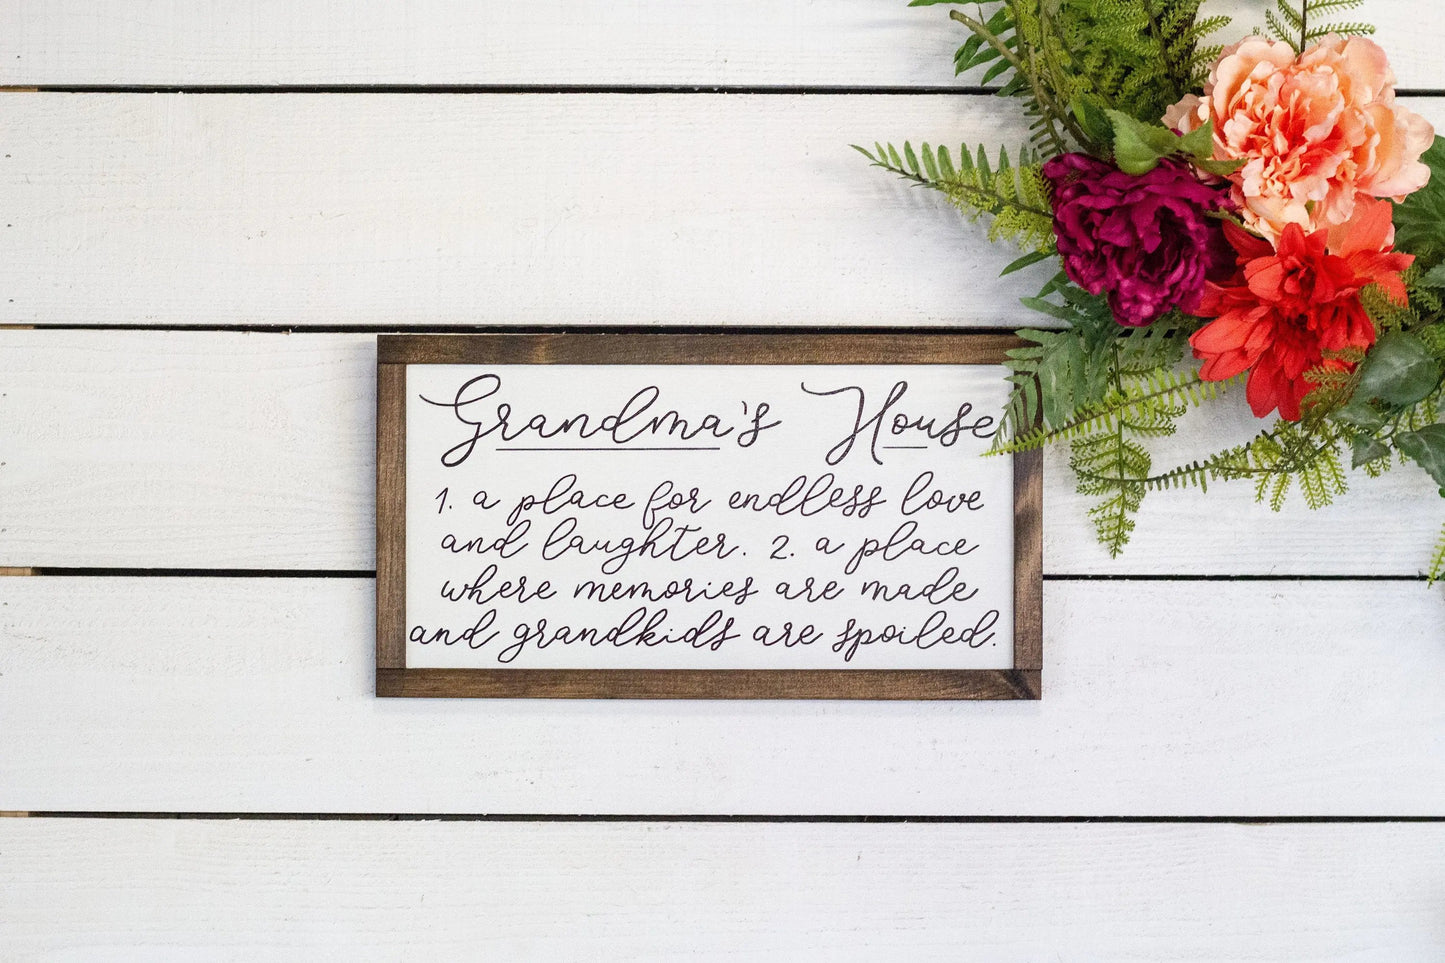 Grandma's House
1. a place for endless love
and laughter. 2. a place
where memories are made
and grandkids are spoiled.